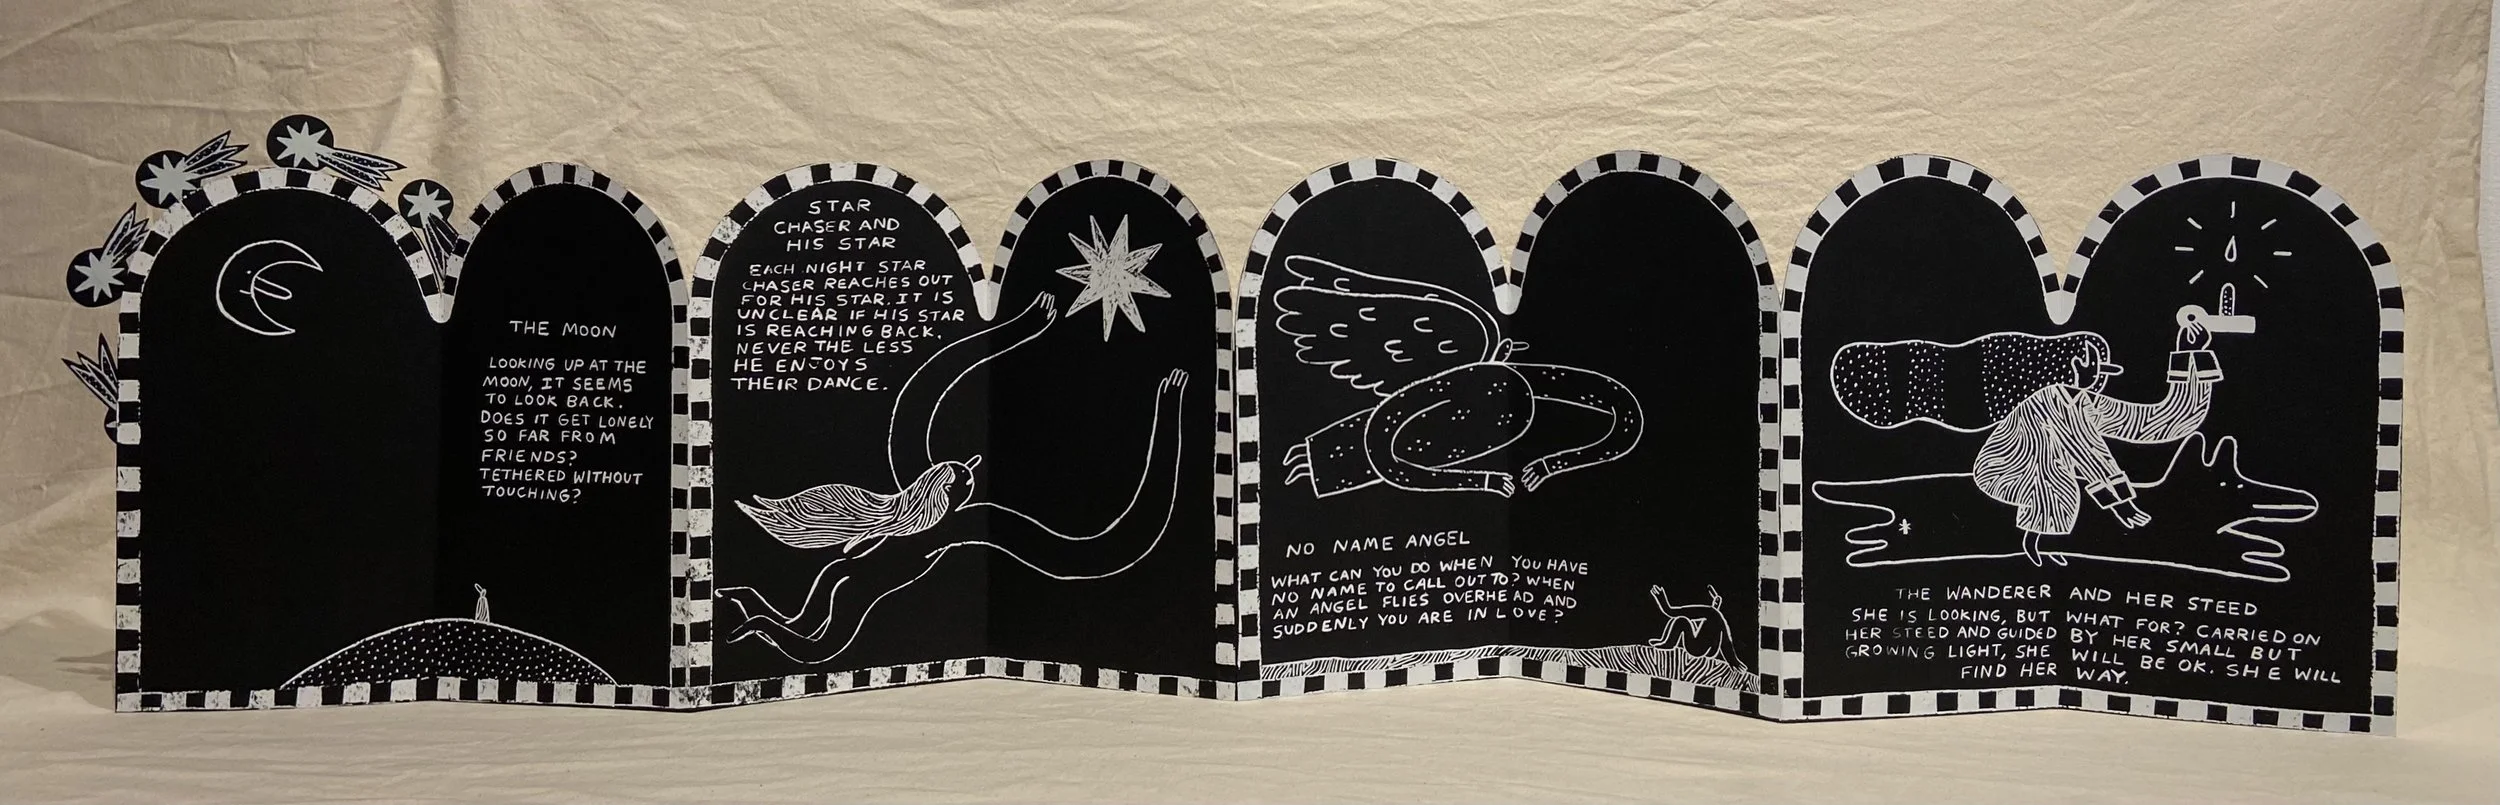 THE MOON
LOOKING UP AT THE
MOON, IT SEEMS
TO LOOK BACK.
DOES IT GET LONELY
SO FAR FROM
FRIENDS?
TETHERED WITHOUT
TOUCHING?
STAR
CHASER AND
HIS STAR
EACH NIGHT STAR
CHASER REACHES OUT
FOR HIS STAR. IT IS
UNCLEAR IF HIS STAR
IS REACHING BACK.
NEVER THE LESS
HE ENJOYS
THEIR DANCE.
NO NAME ANGEL
WHAT CAN YOU DO WHEN YOU HAVE
NO NAME TO CALL OUT TO? WHEN
AN ANGEL FLIES OVERHEAD AND
SUDDENLY YOU ARE IN LOVE?
THE WANDERER AND HER STEED
SHE IS LOOKING, BUT WHAT FOR? CARRIED ON
HER STEED AND GUIDED BY HER SMALL BUT
GROWING LIGHT, SHE WILL BE OK. SHE WILL
FIND HER WAY.